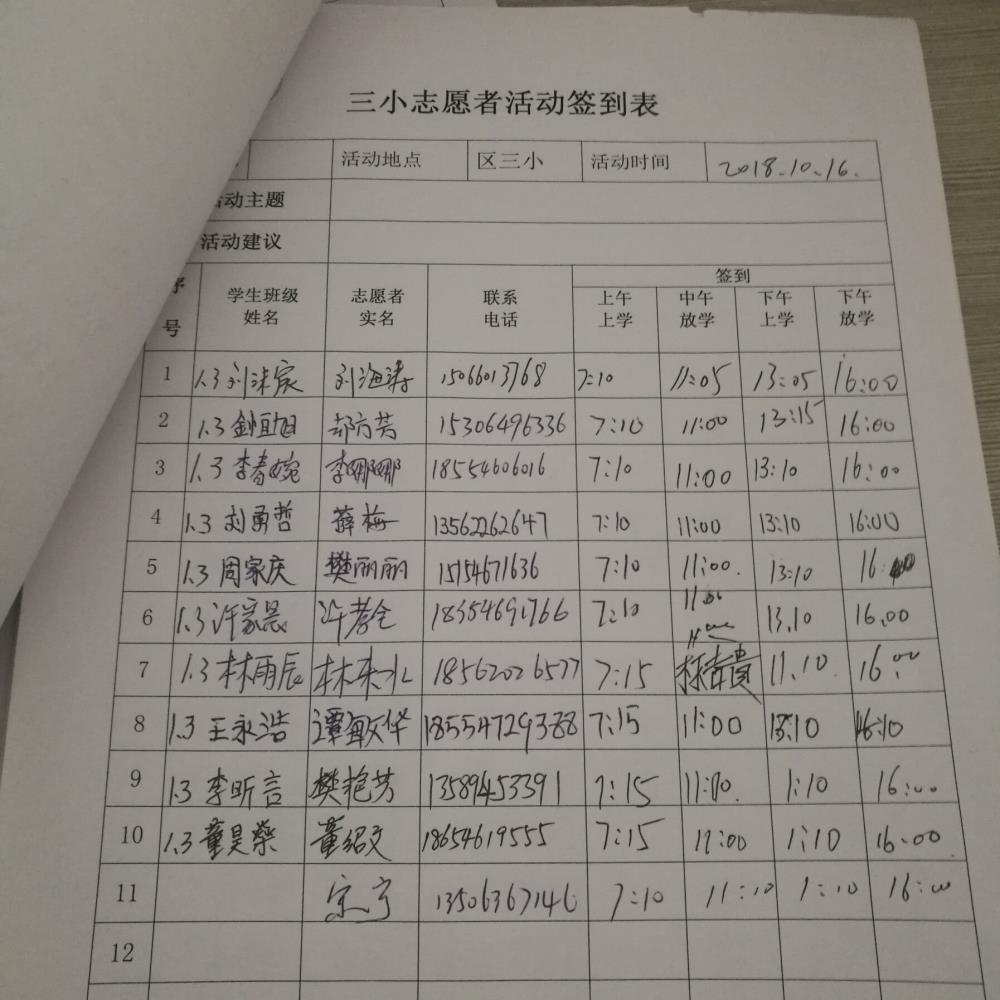 三小志愿者活动签到表
活动地点 区三小 活动时间 2018.10.16.
活动主题
活动建议
序号 学生班级姓名 志愿者实名 联系电话 签到
上午上学 中午放学 下午上学 下午放学
1 1.3 刘沫宸 刘海涛 15066013768 7:10 11:05 13:05 16:00
2 1.3 郄方芸 15306496336 7:10 11:00 13:15 16:00
3 1.3 李春婉 李娜娜 18554606016 7:10 11:00 13:10 16:00
4 1.3 刘勇哲 薛梅 13562262647 7:10 11:00 13:10 16:00
5 1.3 周家庆 樊丽丽 15154671636 7:10 11:00. 13:10 16:
6 1.3 许家晨 许孝全 18354691766 7:10 11:00 13.10 16.00
7 1.3 林雨辰 林来水 18562026577 7:15 11.10 16:00
8 1.3 王永浩 谭敏华 18554729388 7:15 11:00 13:10 16:10
9 1.3 李昕言 樊艳芳 13589453391 7:15 11:00. 1:10 16:00
10 1.3 董昊燊 董绍文 18654619555 7:15 11:00 1:10 16.00
11 宗宁 13506367146 7:10 11:10 1:10 16:00
12